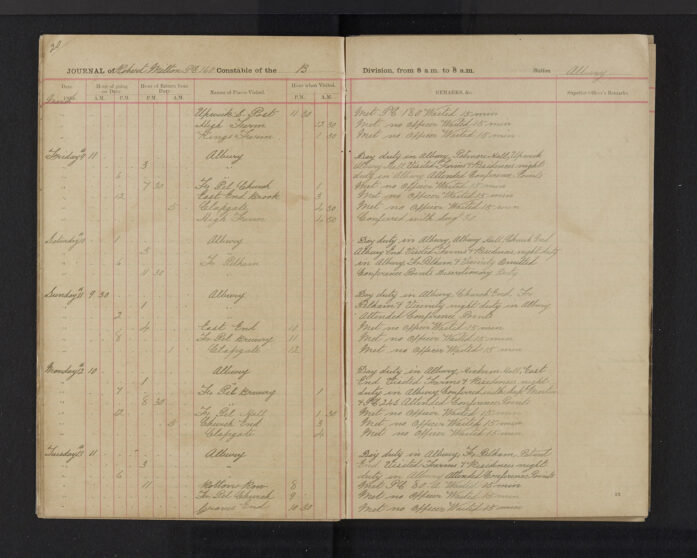 20
JOURNAL of Robert Mellon P.C. 160 Constable of the B Division, from 8 a.m. to 8 a.m. Station Albury
Date. Hour of going on Duty. Hour of Return from Duty. Names of Places Visited. Hour when Visited. REMARKS, &c. Superior Officer's Remarks.
A.M. P.M. P.M. A.M. P.M. A.M.
Upwick & Post 11 30 Met PC 180 Waited 15 min
High Farm 12 30 Met no officer Waited 15 min
Kings Farm 1 30 Met no officer Waited 15 min
Friday 9 11 Albury Day duty in Albury, Upwick
3 Albury Hall Visited Farms & Residences night
6 duty in Albury Attended Conference Points
7 30 Fx Pel Church 1 Met no officer Waited 15 min
12 East End Brook 3 Met no Officer Waited 15 min
5 Clapgate 4 30 Met no officer Waited 15 min
High Farm 4 50 Conferred with Sergt
Saturday 10 1 Albury Day duty in Albury, Albury Hall, Church End
5 Albury End Visited Farms & Residences night duty
6 Fx Pelham in Albury, Fx Pelham & Vicinity Omitted
11 30 Conference Points Discretionary Duty
Sunday 11 9 30 Albury Day duty in Albury, Church End, Fx
1 Pelham & Vicinity night duty in Albury
2 Attended Conference Points
4 East End 11 Met no officer Waited 15 min
8 Fx Pel Brewery 11 Met no officer Waited 15 min
1 Clapgate 12 Met no Officer Waited 15 min
Monday 12 10 Albury Day duty in Albury Hall, East
1 End Visited Farms & Residences night
7 Fx Pel Brewery 1 duty in Albury Conferred with
8 30 & P.C. 245 Attended Conference Points
12 Fx Pel Hall 1 30 Met no Officer Waited 15 min
5 Church End 3 Met no Officer Waited 15 min
Clapgate 4 Met no officer Waited 15 min
Tuesday 13 11 Albury Day duty in Albury, Fx Pelham, Patient
3 End Visited Farms & Residences night
6 duty in Albury Attended Conference Points
11 Bottom Row 8 Met PC 80 A Waited 15 min
Fx Pel Church 9 Met no Officer Waited 15 min
Graves End 10 30 Met no officer Waited 15 min